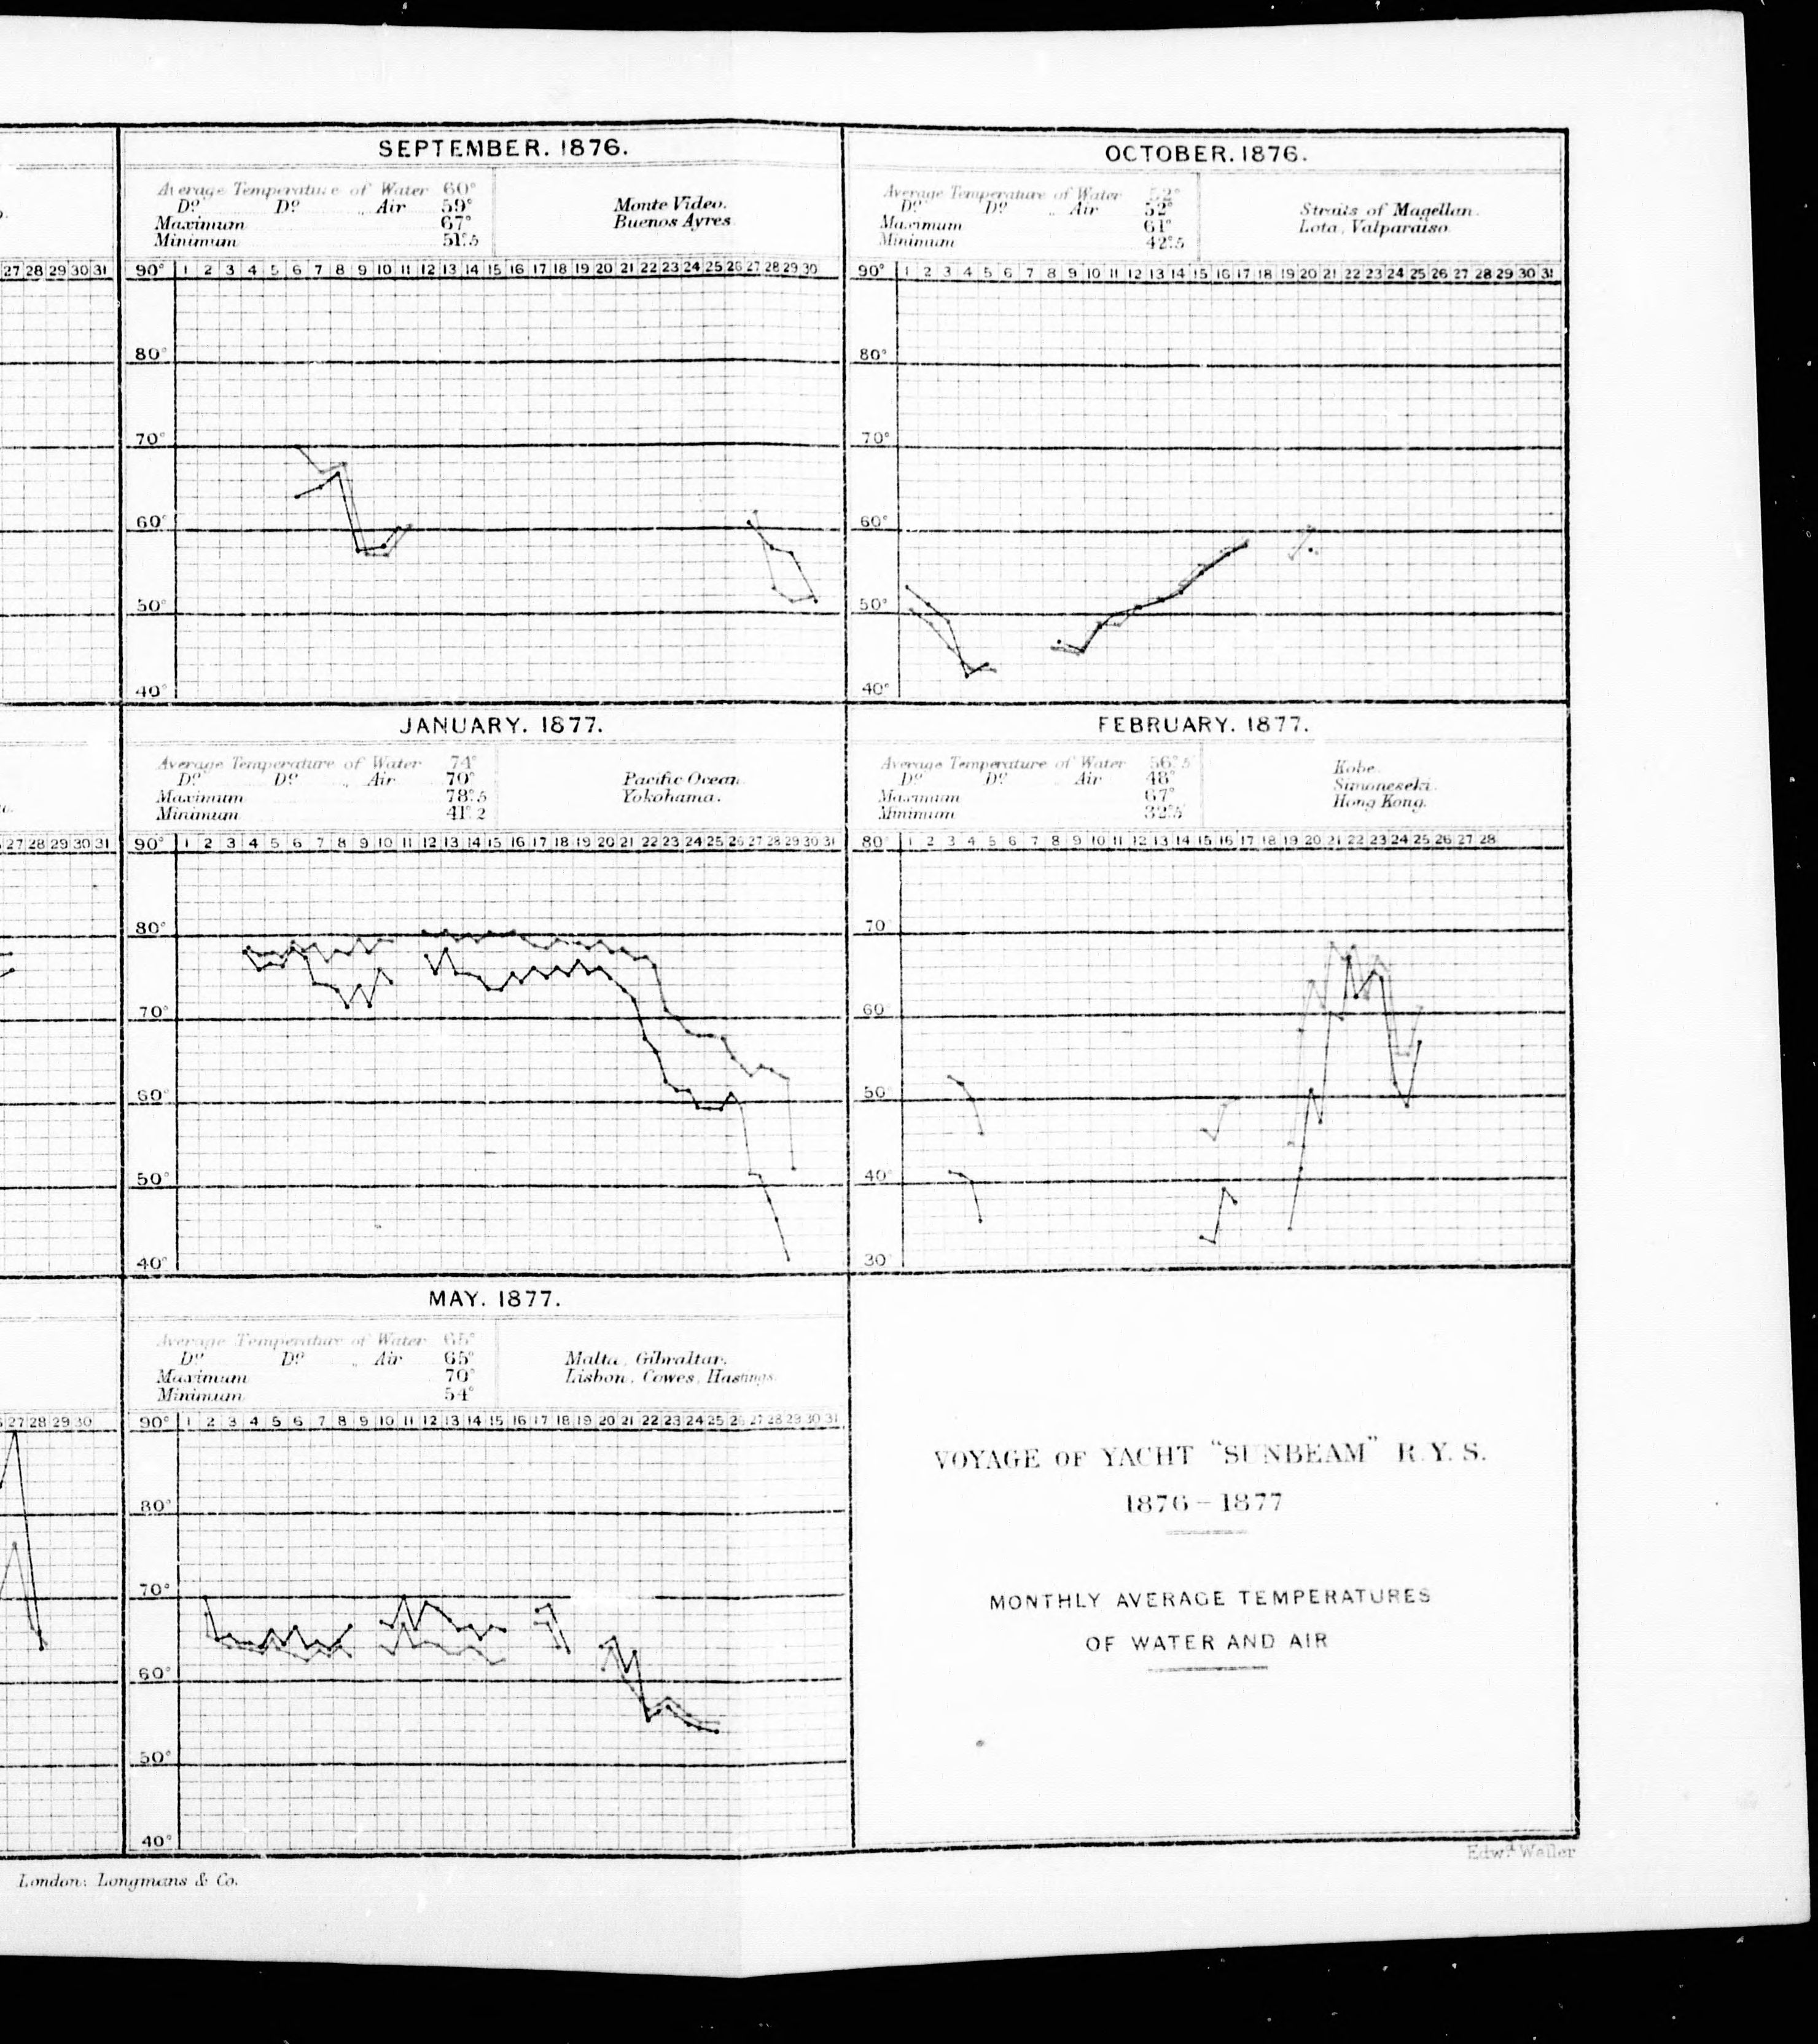 SEPTEMBER. 1876.
Average Temperature of Water 60°
Dº Dº „ Air 59°
Maximum 67°
Minimum 51°.5
Monte Video.
Buenos Ayres
27 28 29 30 31
90° 1 2 3 4 5 6 7 8 9 10 11 12 13 14 15 16 17 18 19 20 21 22 23 24 25 26 27 28 29 30
80°
70°
60°
50°
40°
OCTOBER. 1876.
Average Temperature of Water 52°
Dº Dº „ Air 52°
Maximum 61°
Minimum 42°.5
Straits of Magellan.
Lota, Valparaiso.
90° 1 2 3 4 5 6 7 8 9 10 11 12 13 14 15 16 17 18 19 20 21 22 23 24 25 26 27 28 29 30 31
80°
70°
60°
50°
40°
JANUARY. 1877.
Average Temperature of Water 74°
Dº Dº „ Air 70°
Maximum 78°.5
Minimum 41°.2
Pacific Ocean.
Yokohama.
27 28 29 30 31
90° 1 2 3 4 5 6 7 8 9 10 11 12 13 14 15 16 17 18 19 20 21 22 23 24 25 26 27 28 29 30 31
80°
70°
60°
50°
40°
FEBRUARY. 1877.
Average Temperature of Water 56°.5
Dº Dº „ Air 48°
Maximum 67°
Minimum 32°.5
Kobe.
Simoneseki.
Hong Kong.
80° 1 2 3 4 5 6 7 8 9 10 11 12 13 14 15 16 17 18 19 20 21 22 23 24 25 26 27 28
70°
60°
50°
40°
30°
MAY. 1877.
Average Temperature of Water 65°
Dº Dº „ Air 65°
Maximum 70°
Minimum 54°
Malta, Gibraltar.
Lisbon, Cowes, Hastings
27 28 29 30
90° 1 2 3 4 5 6 7 8 9 10 11 12 13 14 15 16 17 18 19 20 21 22 23 24 25 26 27 28 29 30 31
80°
70°
60°
50°
40°
VOYAGE OF YACHT "SUNBEAM" R.Y.S.
1876–1877
MONTHLY AVERAGE TEMPERATURES
OF WATER AND AIR
Edwd Weller
London: Longmans & Co.